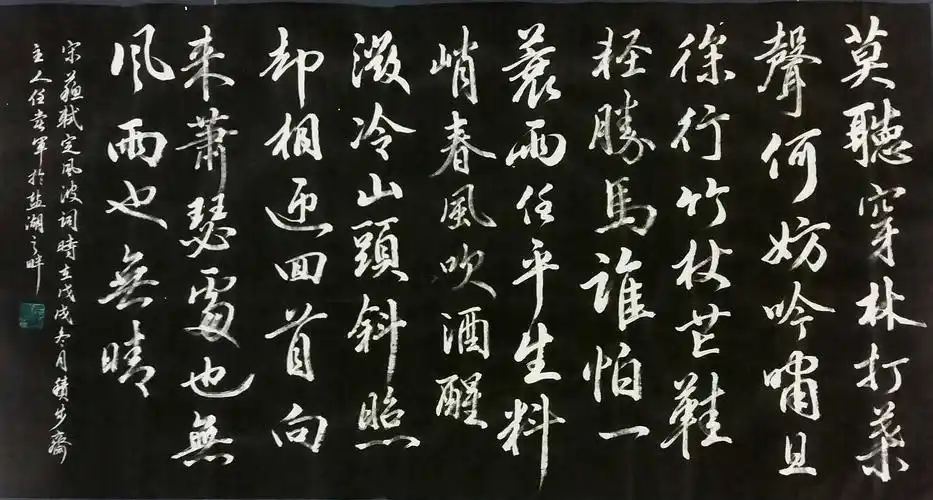 莫聽穿林打葉
聲何妨吟嘯且
徐行竹杖芒鞋
轻勝馬誰怕一
蓑雨任平生料
峭春風吹酒醒
微冷山頭斜照
却相迎回首向
来蕭瑟處也無
风雨也無晴
宋蘇軾定風波詞時在戊戌冬月積步齋
主人任軍於盐湖之畔